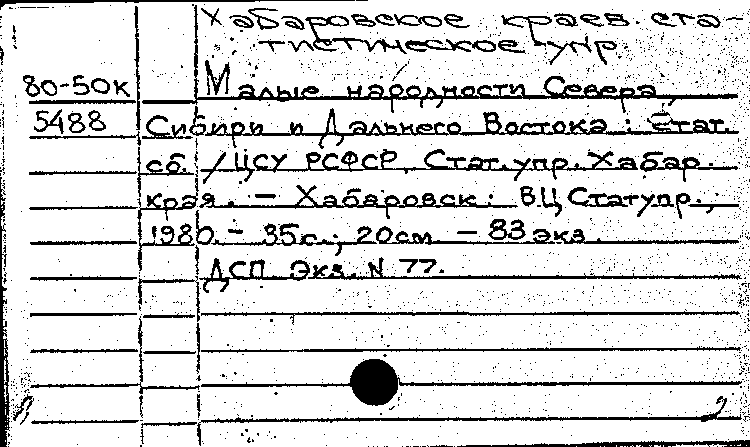 Хабаровское краев. ста-
тистическое упр.
80-50к Малые народности Севера,
5488 Сибири и Дальнего Востока : Стат.
сб. / ЦСУ РСФСР, Стат. упр. Хабар.
края. – Хабаровск : ВЦ Статупр.,
1980. – 35с.; 20см. – 83 экз.
ДСП. Экз. N 77.